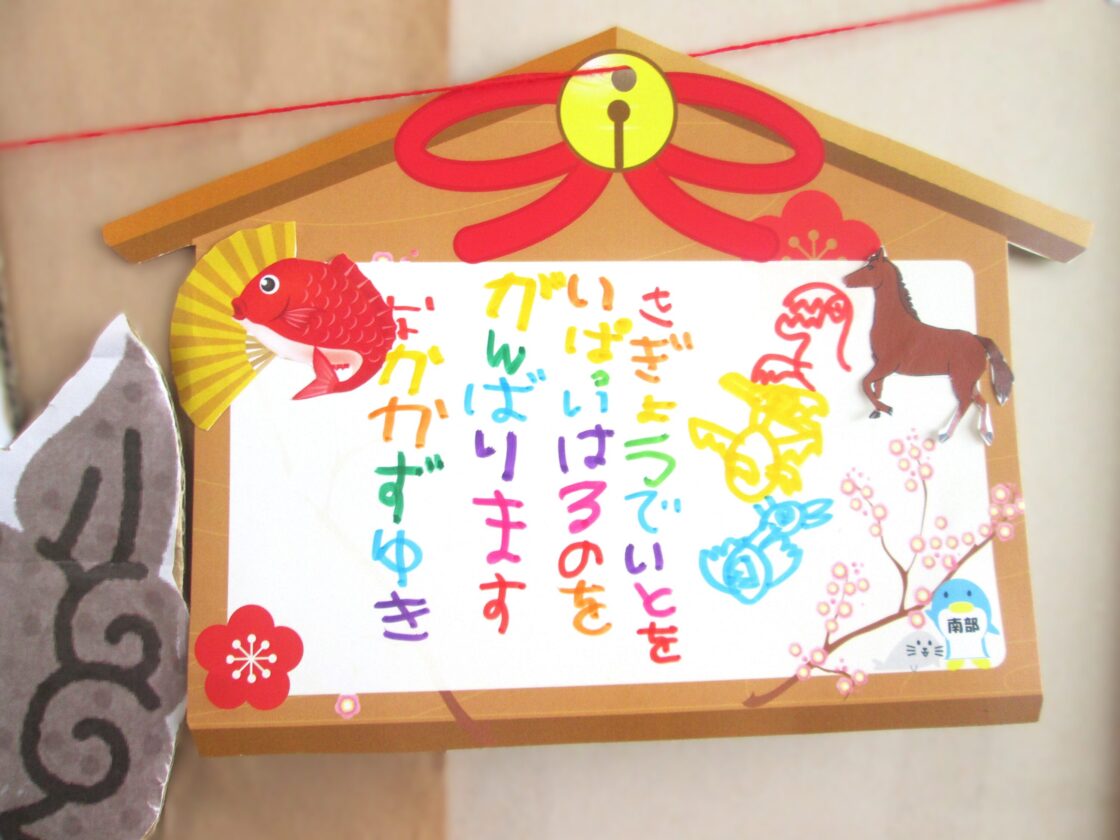 さぎょうでいとを
いぱっいはろのを
がんばります
かかずゆき
南部